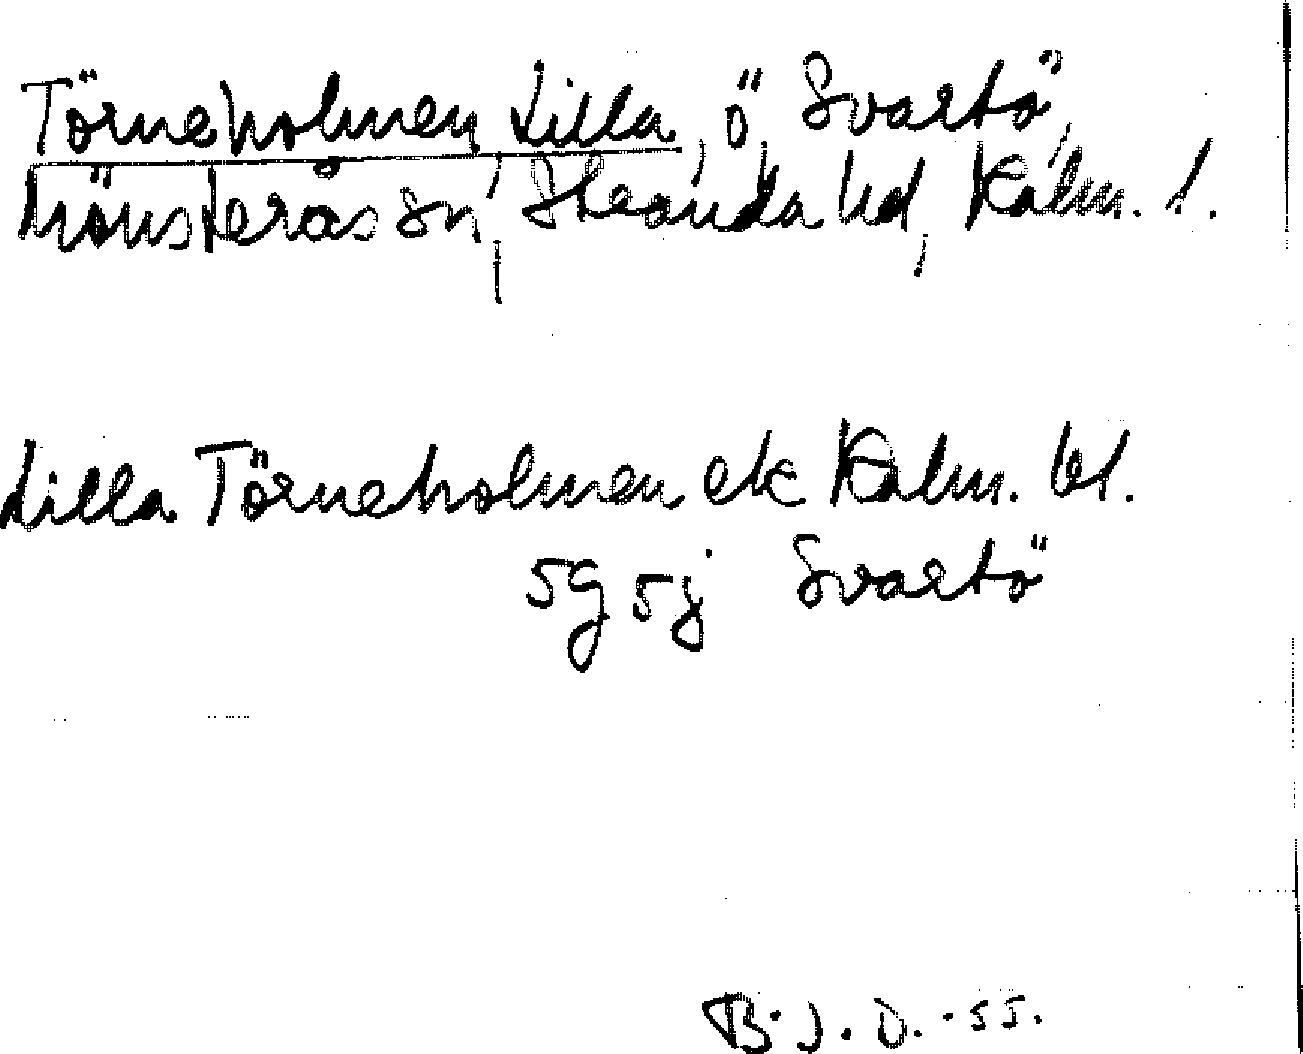 Törneholmen, Lilla, ö, Svartö,
Mönsterås sn, Stranda hd, Kalm. l.
Lilla Törneholmen ek Kalm. bl.
5g 5j Svartö
B. J. D. -55.